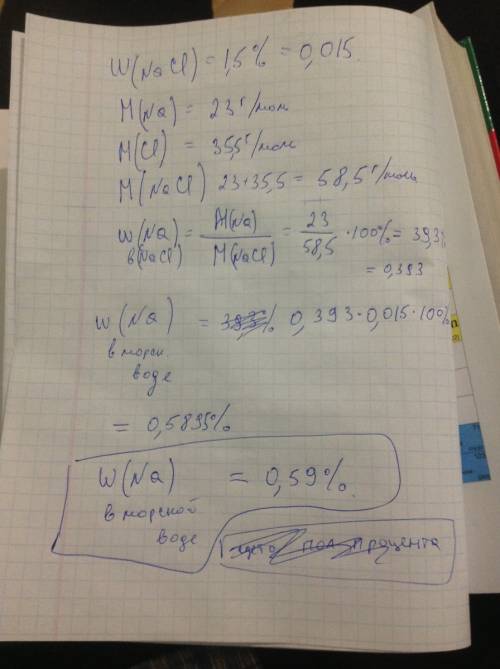 W(NaCl) = 1,5% = 0,015
M(Na) = 23 г/моль
M(Cl) = 35,5 г/моль
M(NaCl) 23+35,5 = 58,5 г/моль
W(Na) в(NaCl) = M(Na) / M(NaCl) = 23 / 58,5 · 100% = 39,3%
= 0,393
W(Na) = 39,3% 0,393 · 0,015 · 100%
в морск.
воде
= 0,5895%
W(Na) = 0,59%
в морской
воде
пол процента